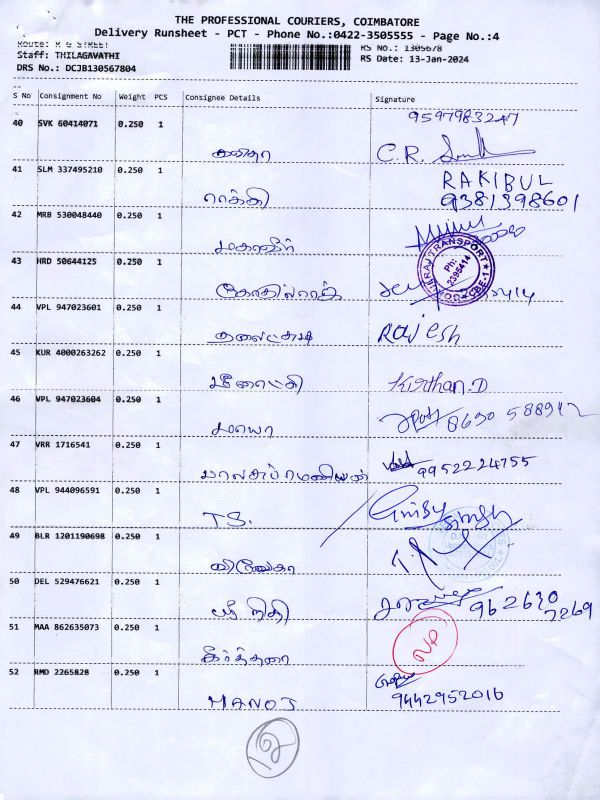 THE PROFESSIONAL COURIERS, COIMBATORE
Delivery Runsheet - PCT - Phone No.:0422-3505555 - Page No.:4
Route: K G STREET
Staff: THILAGAVATHI
DRS No.: DCJB130567804
RS No.: 1305678
RS Date: 13-Jan-2024
S No Consignment No Weight PCS Consignee Details Signature
9597983247
40 SVK 60414071 0.250 1
C.R.
41 SLM 337495210 0.250 1 RAKIBUL
ராக்கி 9381398601
42 MRB 530048440 0.250 1
43 HRD 50644125 0.250 1
TRANSPORT
Ph:
2395414
CBE-1
44 VPL 947023601 0.250 1
Rajesh
45 KUR 4000263262 0.250 1
மீனாட்சி Kirthan.D
46 VPL 947023604 0.250 1
மாயா 8630 588912
47 VRR 1716541 0.250 1
பாலசுப்ரமணியன் 9952224755
48 VPL 944096591 0.250 1
T.S. Singh
49 BLR 1201190698 0.250 1
50 DEL 529476621 0.250 1
ஸ்ரீ நிதி 962630
7269
51 MAA 862635073 0.250 1
கீர்த்தனா
52 RMD 2265828 0.250 1
MANOJ 9442952016